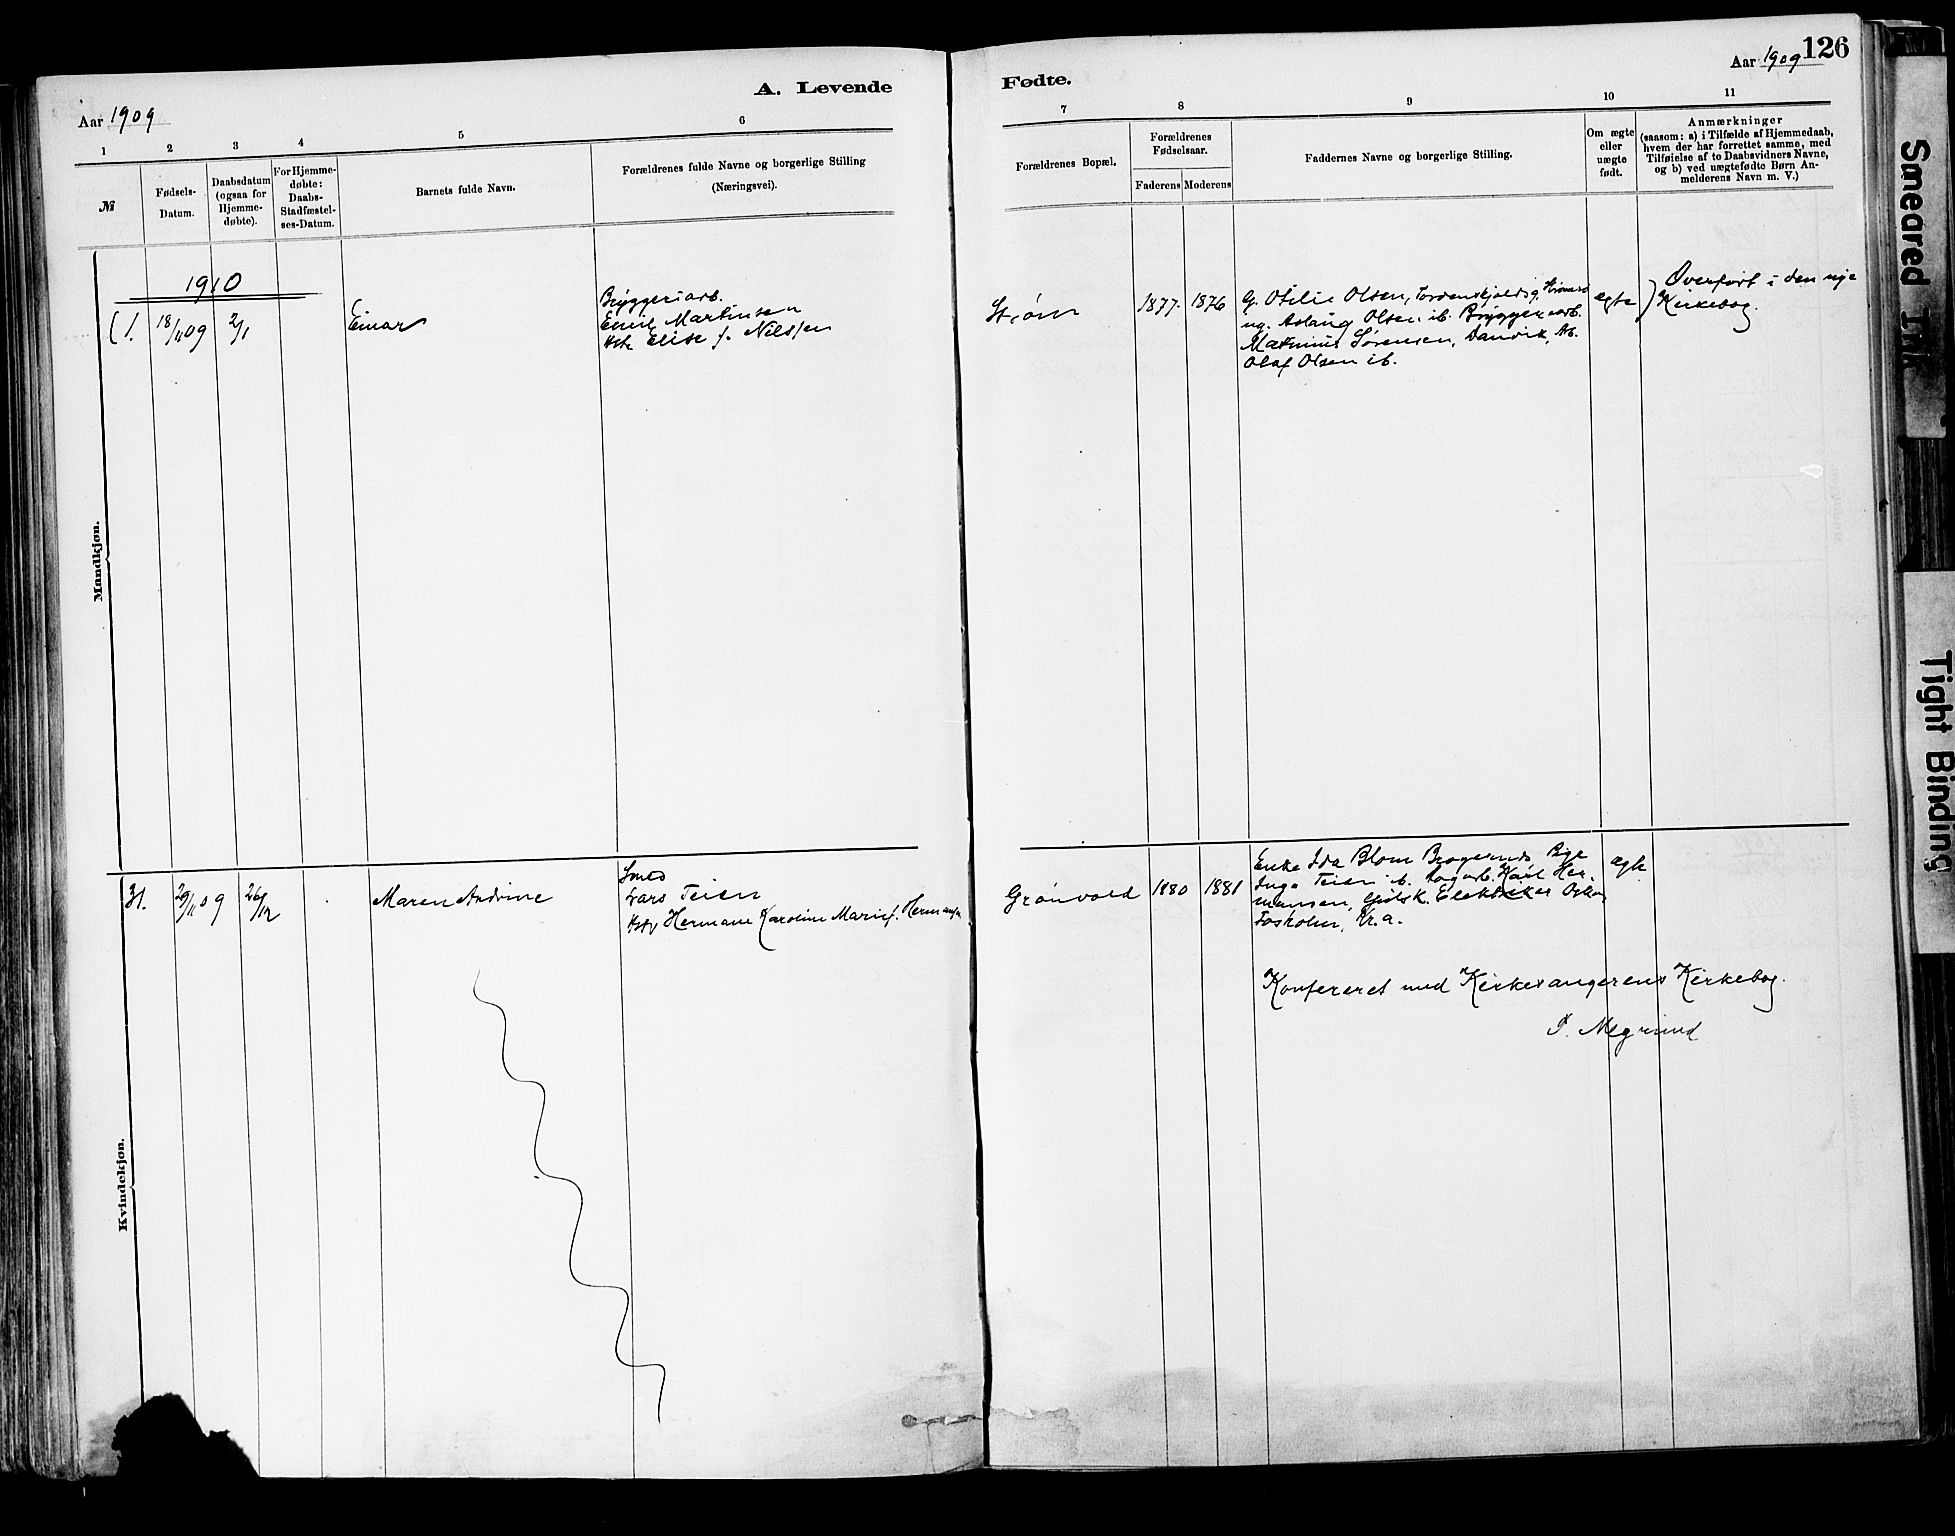 A. Levende
Fødte.
126
Aar 1909
Aar 1909
1 2 3 4 5 6
7 8 9 10 11
№
Fødsels-
Datum.
Daabsdatum
(ogsaa for
Hjemme-
døbte).
For Hjemme-
døbte:
Daabs-
Stadfæstel-
ses-Datum.
Barnets fulde Navn.
Forældrenes fulde Navne og borgerlige Stilling
(Næringsvei).
Forældrenes Bopæl.
Forældrenes
Fødselsaar.
Faderens Moderens
Faddernes Navne og borgerlige Stilling.
Om ægte
eller
uægte
født.
Anmærkninger
(saasom: a) i Tilfælde af Hjemmedaab,
hvem der har forrettet samme, med
Tilføielse af to Daabsvidners Navne,
og b) ved uægtefødte Børn An-
melderens Navn m. V.)
Mandkjøn.
1910
(1. 18/11 09 2/1
Einar
Bryggeriarb.
Emil Martinsen
Elise f. Nilssen
Strøm
1877. 1876
G. Otilie Olsen, Tordenskjoldsg.
ug. Aslaug Olsen ib. Bryggeriarb.
Martinius Sørensen, Danvik, Ab.
Olaf Olsen ib.
egte
Overført i den nye
Kirkebog.
Kvindekjøn.
31. 29/11 09 26/12
Maren Andrine
Smed
Lars Teien
Hermane Karoline Marie f.
Grønvold
1880 1881
Enke Ida Blom Bragernes, Pige
Inga Teien ib. Karl Her-
mansen, Elektriker
Kr.a.
egte
Konfereret med Kirkesangerens Kirkebog.
Megrund
Smeared Ink
Tight Binding